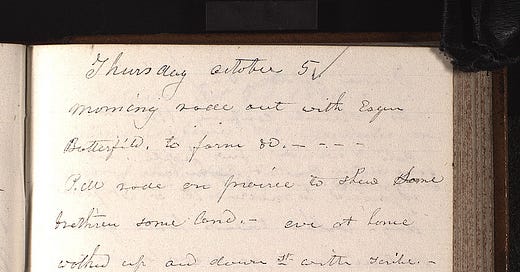 Thursday october 5
morning rode out with Esqur
Butterfild. to farm &c. — - - -
P.M rode on prairie to shew Some
brethren some land. — eve at home
walked up and down St with scribe. —